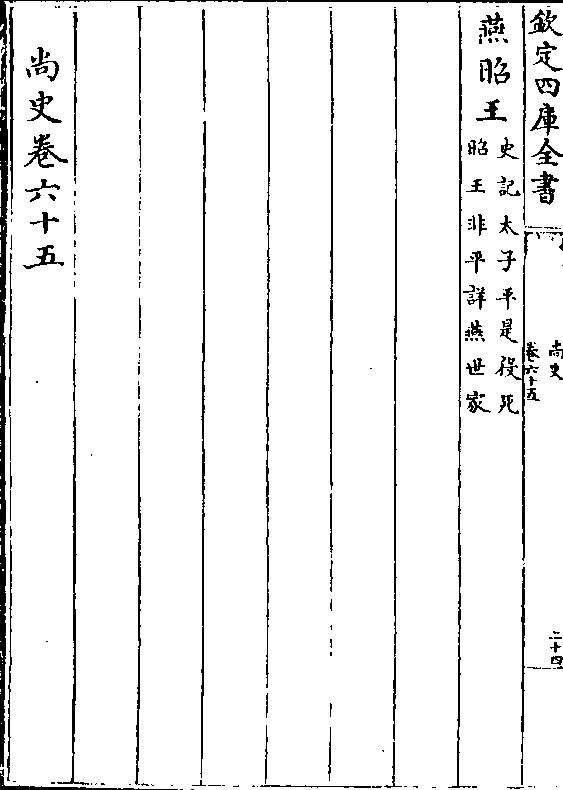 欽定四庫全書
尚史
卷六十五
二十四
燕昭王
史記太子平是役死
昭王非平詳燕世家
尚史卷六十五